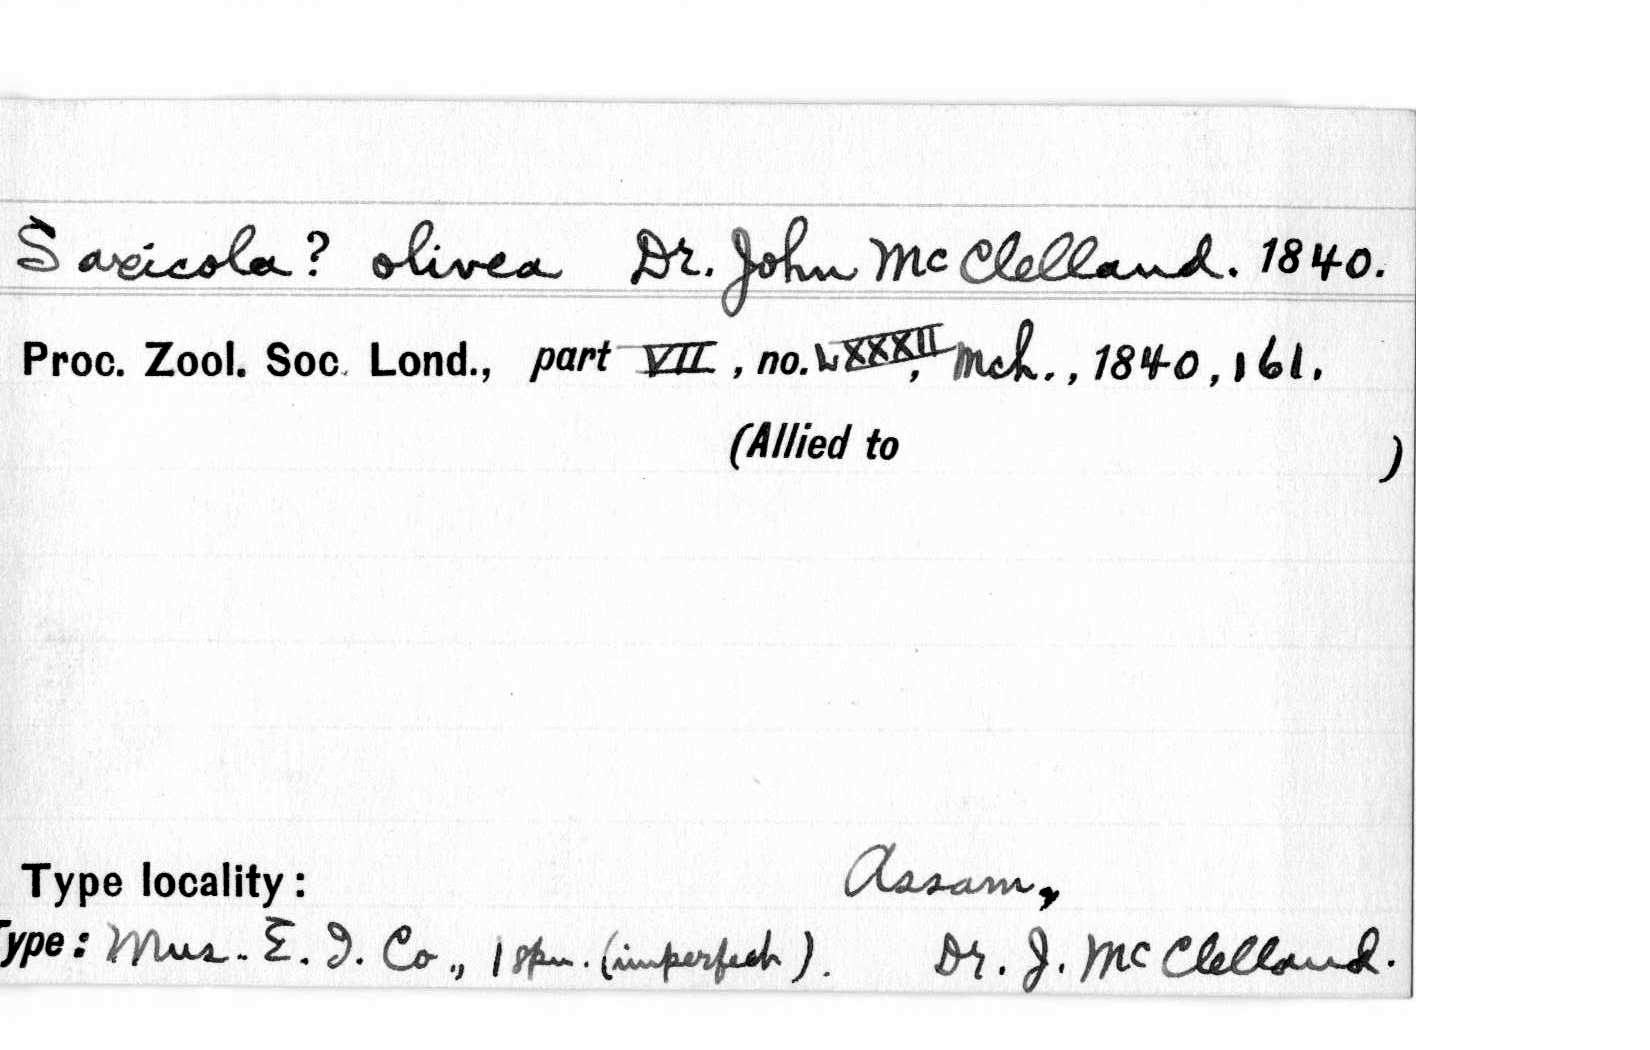 Saxicola? olivea Dr. John McClelland. 1840.
Proc. Zool. Soc. Lond., part VII, no. LXXXII, Mch., 1840, 161.
(Allied to )
Type locality: Assam,
Type: Mus. E. I. Co., 1 spm. (imperfect). Dr. J. McClelland.